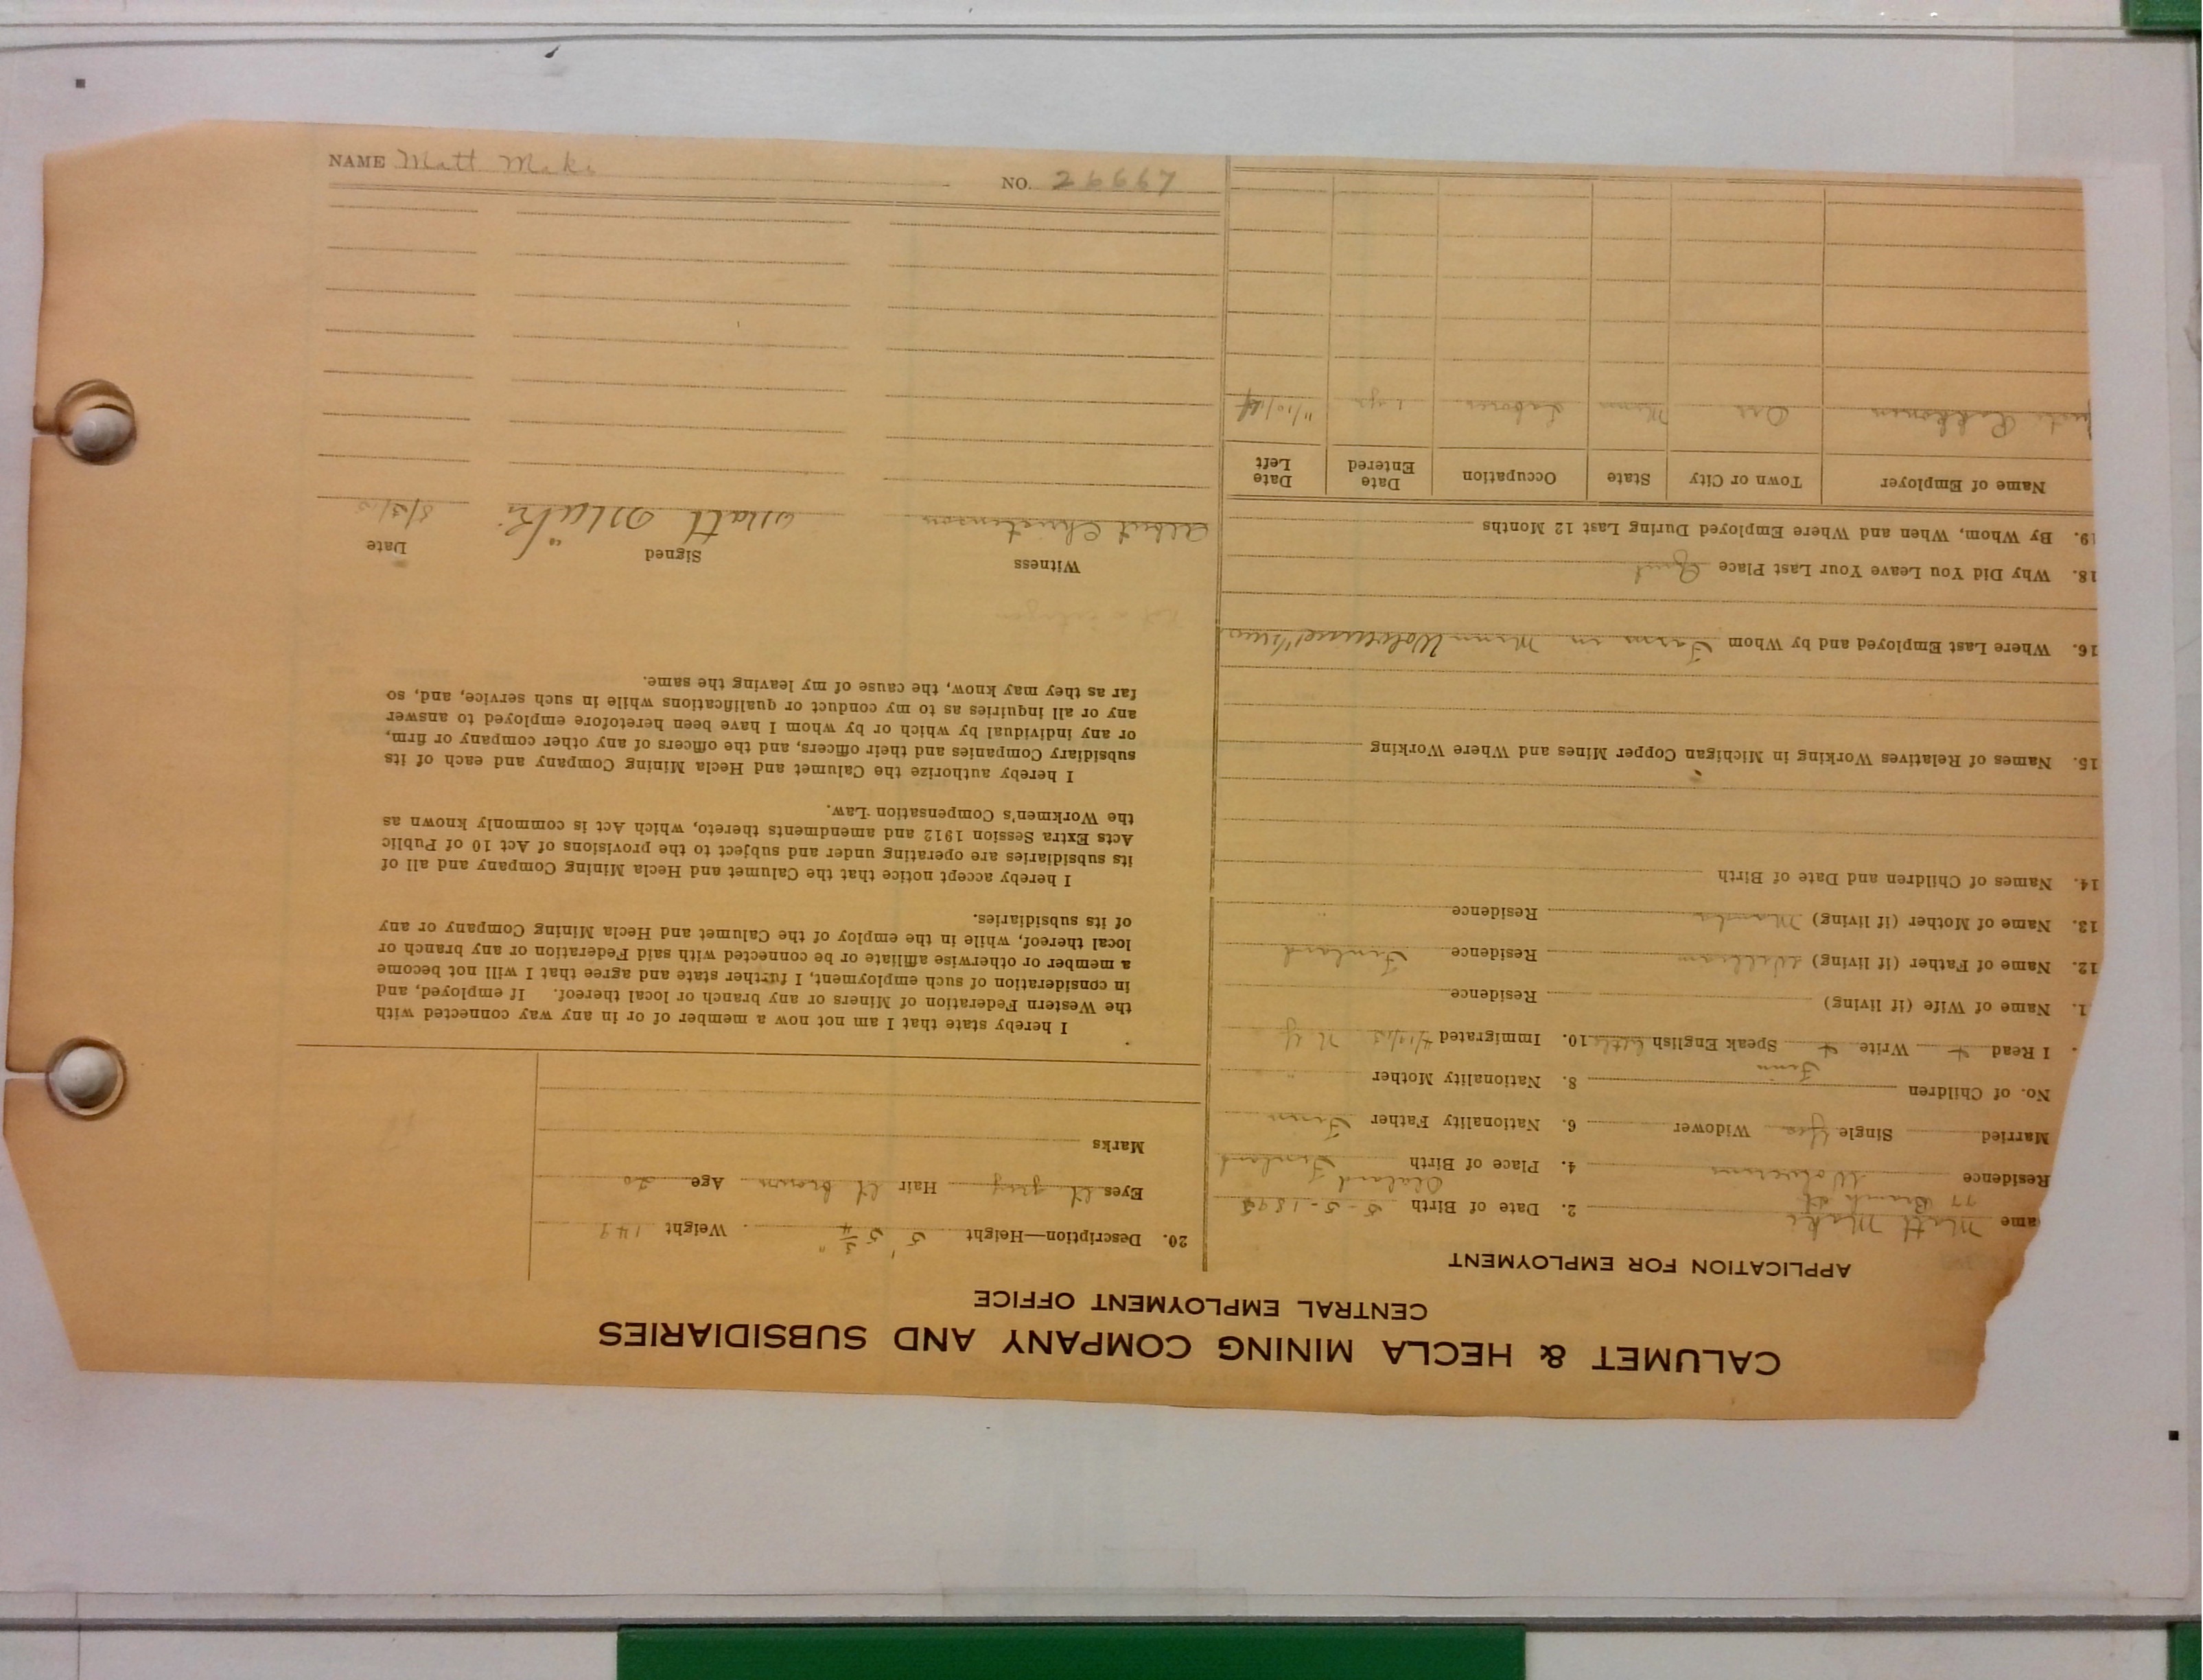 CALUMET & HECLA MINING COMPANY AND SUBSIDIARIES
CENTRAL EMPLOYMENT OFFICE
APPLICATION FOR EMPLOYMENT
ame Matt Maki
2. Date of Birth 5-5-1895
77 Branch St
Residence Wolverine
4. Place of Birth Finland
Married Single Yes Widower
6. Nationality Father Finn
No. of Children
8. Nationality Mother "
Finn
I Read + Write + Speak English little
10. Immigrated N Y
1. Name of Wife (if living) Residence
12. Name of Father (if living) William Residence Finland
13. Name of Mother (if living) Residence "
14. Names of Children and Date of Birth
15. Names of Relatives Working in Michigan Copper Mines and Where Working
16. Where Last Employed and by Whom Farm in Minn Wolverine
18. Why Did You Leave Your Last Place Quit
19. By Whom, When and Where Employed During Last 12 Months
Name of Employer Town or City State Occupation Date Entered Date Left
Orr Minn Laborer 1 yr
20. Description—Height 5' 5 3/4" Weight 149
Eyes lt grey Hair lt brown Age 20
Marks
I hereby state that I am not now a member of or in any way connected with
the Western Federation of Miners or any branch or local thereof. If employed, and
in consideration of such employment, I further state and agree that I will not become
a member or otherwise affiliate or be connected with said Federation or any branch or
local thereof, while in the employ of the Calumet and Hecla Mining Company or any
of its subsidiaries.
I hereby accept notice that the Calumet and Hecla Mining Company and all of
its subsidiaries are operating under and subject to the provisions of Act 10 of Public
Acts Extra Session 1912 and amendments thereto, which Act is commonly known as
the Workmen's Compensation Law.
I hereby authorize the Calumet and Hecla Mining Company and each of its
subsidiary Companies and their officers, and the officers of any other company or firm,
or any individual by which or by whom I have been heretofore employed to answer
any or all inquiries as to my conduct or qualifications while in such service, and, so
far as they may know, the cause of my leaving the same.
Witness Signed Date
Albert Christenson Matt Mäki
NAME Matt Maki NO. 26667